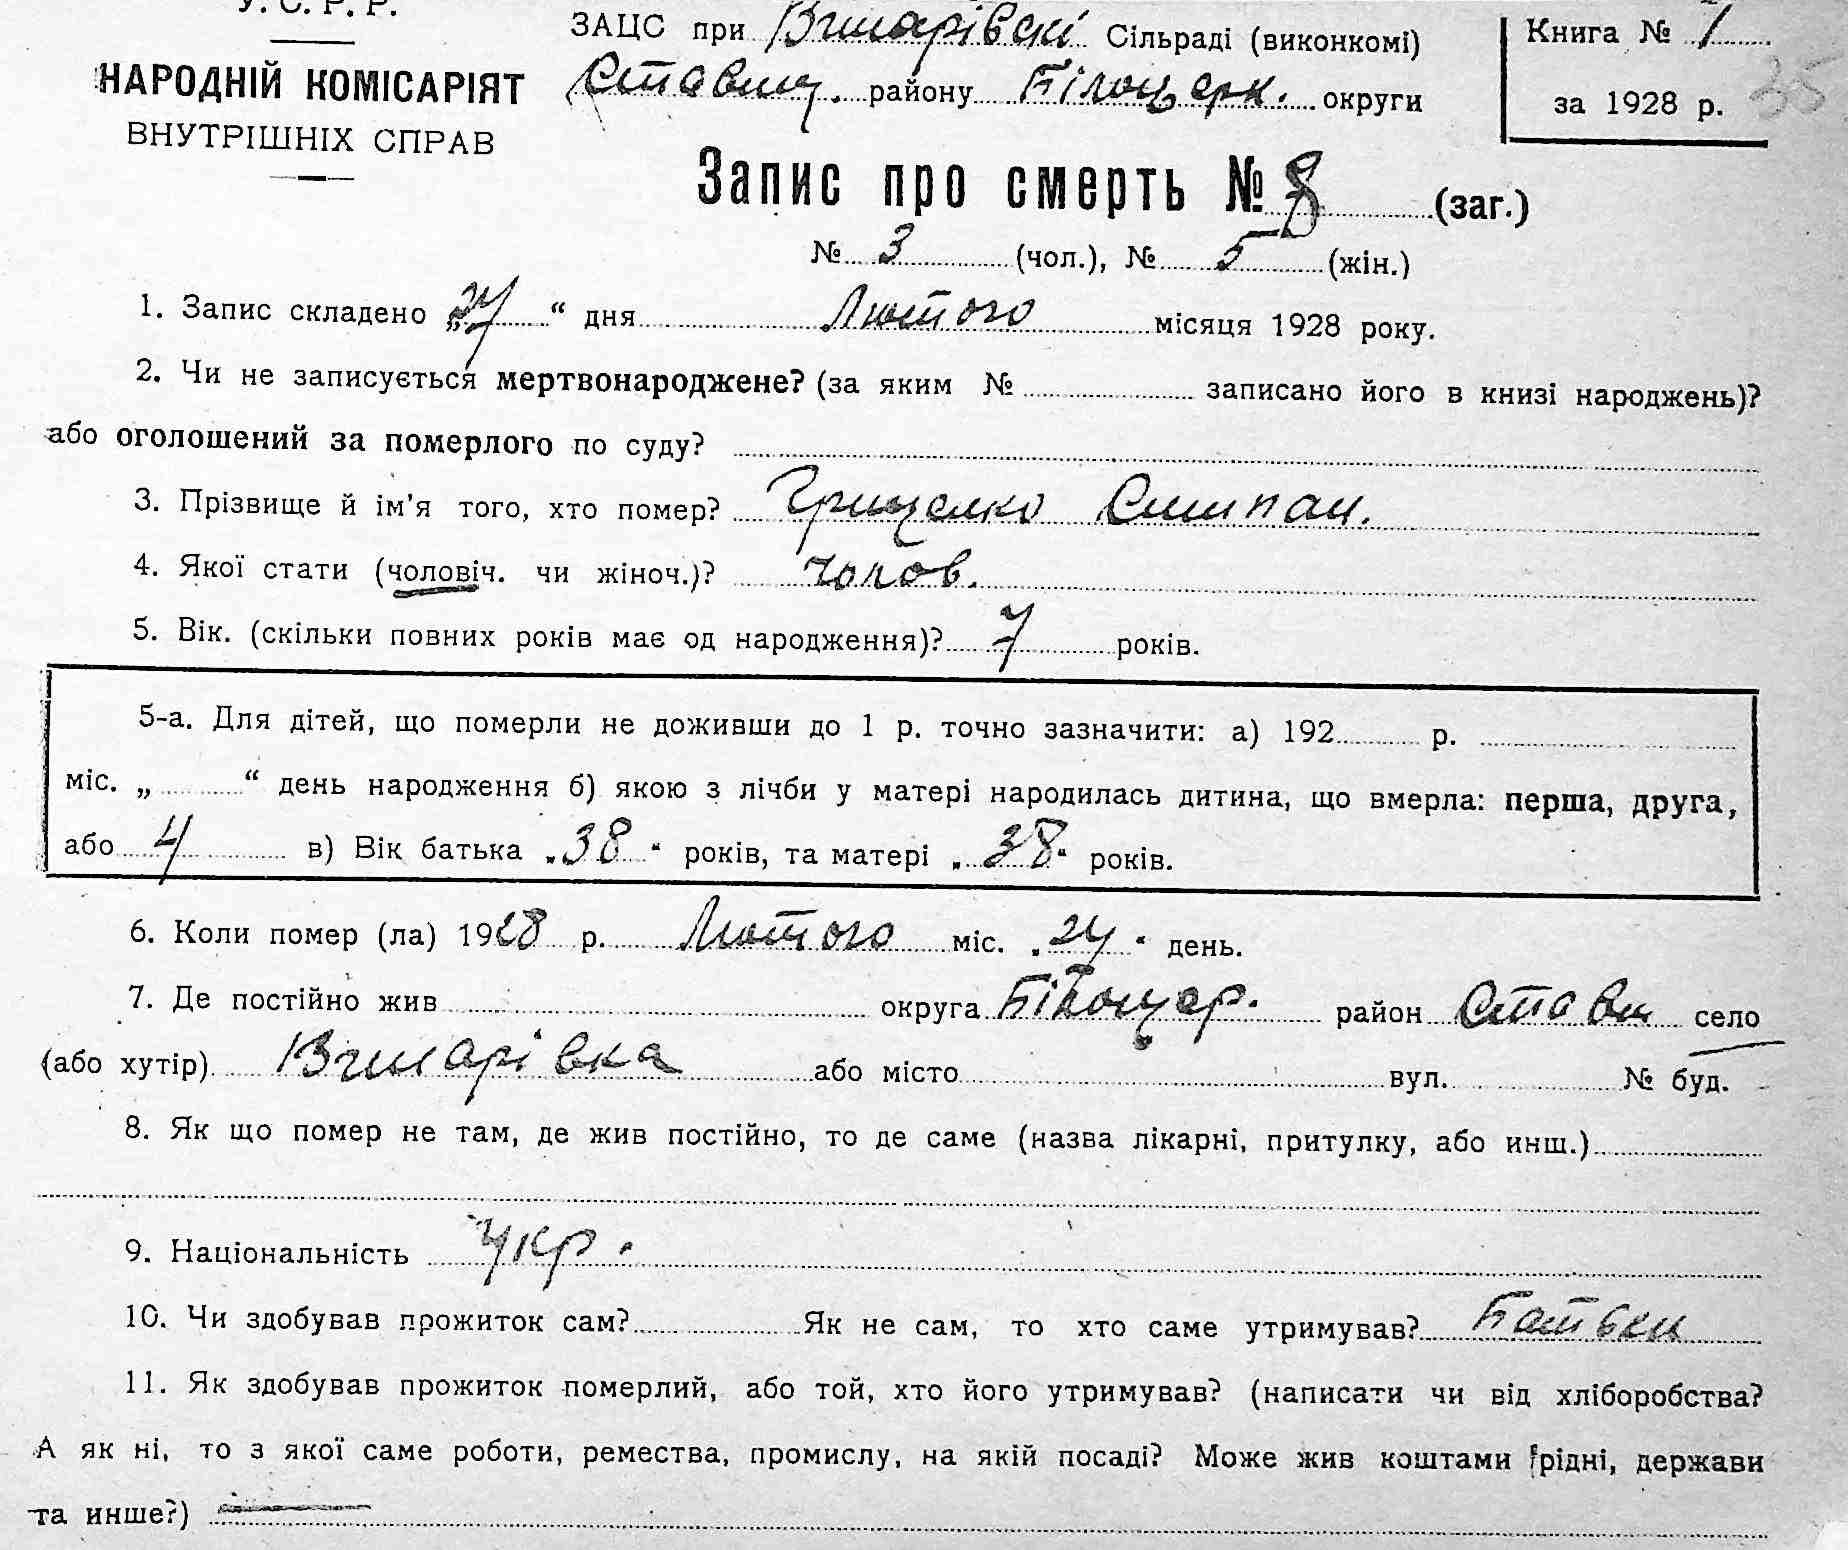 У. С. Р. Р.
НАРОДНІЙ КОМІСАРІЯТ
ВНУТРІШНІХ СПРАВ
ЗАЦС при Вгиларівскі Сільраді (виконкомі)
Ставищ. району Білоцерк. округи
Книга № 1
за 1928 р. 35
Запис про смерть № 8 (заг.)
№ 3 (чол.), № 5 (жін.)
1. Запис складено „27“ дня Лютого місяця 1928 року.
2. Чи не записується мертвонароджене? (за яким № записано його в книзі народжень)?
або оголошений за померлого по суду?
3. Прізвище й ім'я того, хто помер? Гриценко
4. Якої стати (чоловіч. чи жіноч.)? чолов.
5. Вік. (скільки повних років має од народження)? 7 років.
5-а. Для дітей, що померли не доживши до 1 р. точно зазначити: а) 192 р.
міс. „ “ день народження б) якою з лічби у матері народилась дитина, що вмерла: перша, друга,
або 4 в) Вік батька „38“ років, та матері „38“ років.
6. Коли помер (ла) 1928 р. Лютого міс. „24“ день.
7. Де постійно жив округа Білоцер. район Стави село
(або хутір) або місто вул. № буд.
8. Як що помер не там, де жив постійно, то де саме (назва лікарні, притулку, або инш.)
9. Національність Укр.
10. Чи здобував прожиток сам? Як не сам, то хто саме утримував? Батьки
11. Як здобував прожиток померлий, або той, хто його утримував? (написати чи від хліборобства?
А як ні, то з якої саме роботи, ремества, промислу, на якій посаді? Може жив коштами рідні, держави
та инше?)